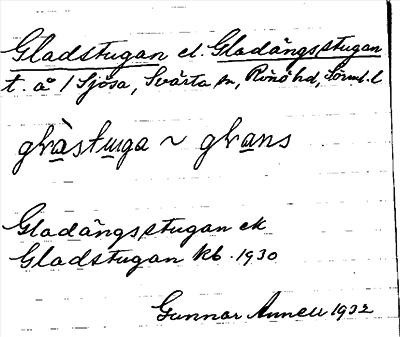 Gladstugan el. Gladängsstugan
t. å / Sjösa, Svärta sn, Rönö hd, Sörml. l
Gladängsstugan ek
Gladstugan kb. 1930
Gunnar Annell 1932